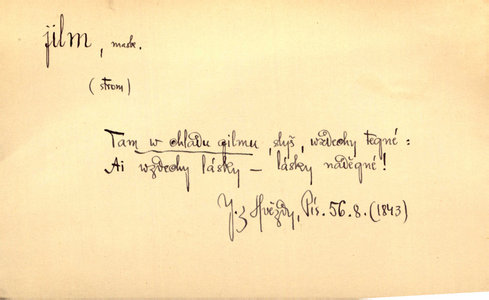 jilm, mask.
(strom)
Tam w chládu gilmu, slyš, wzdechy tegné:
Ai wzdechy lásky – lásky naděgné!
J. z Hvězdy, Pís. 56. 8. (1843)